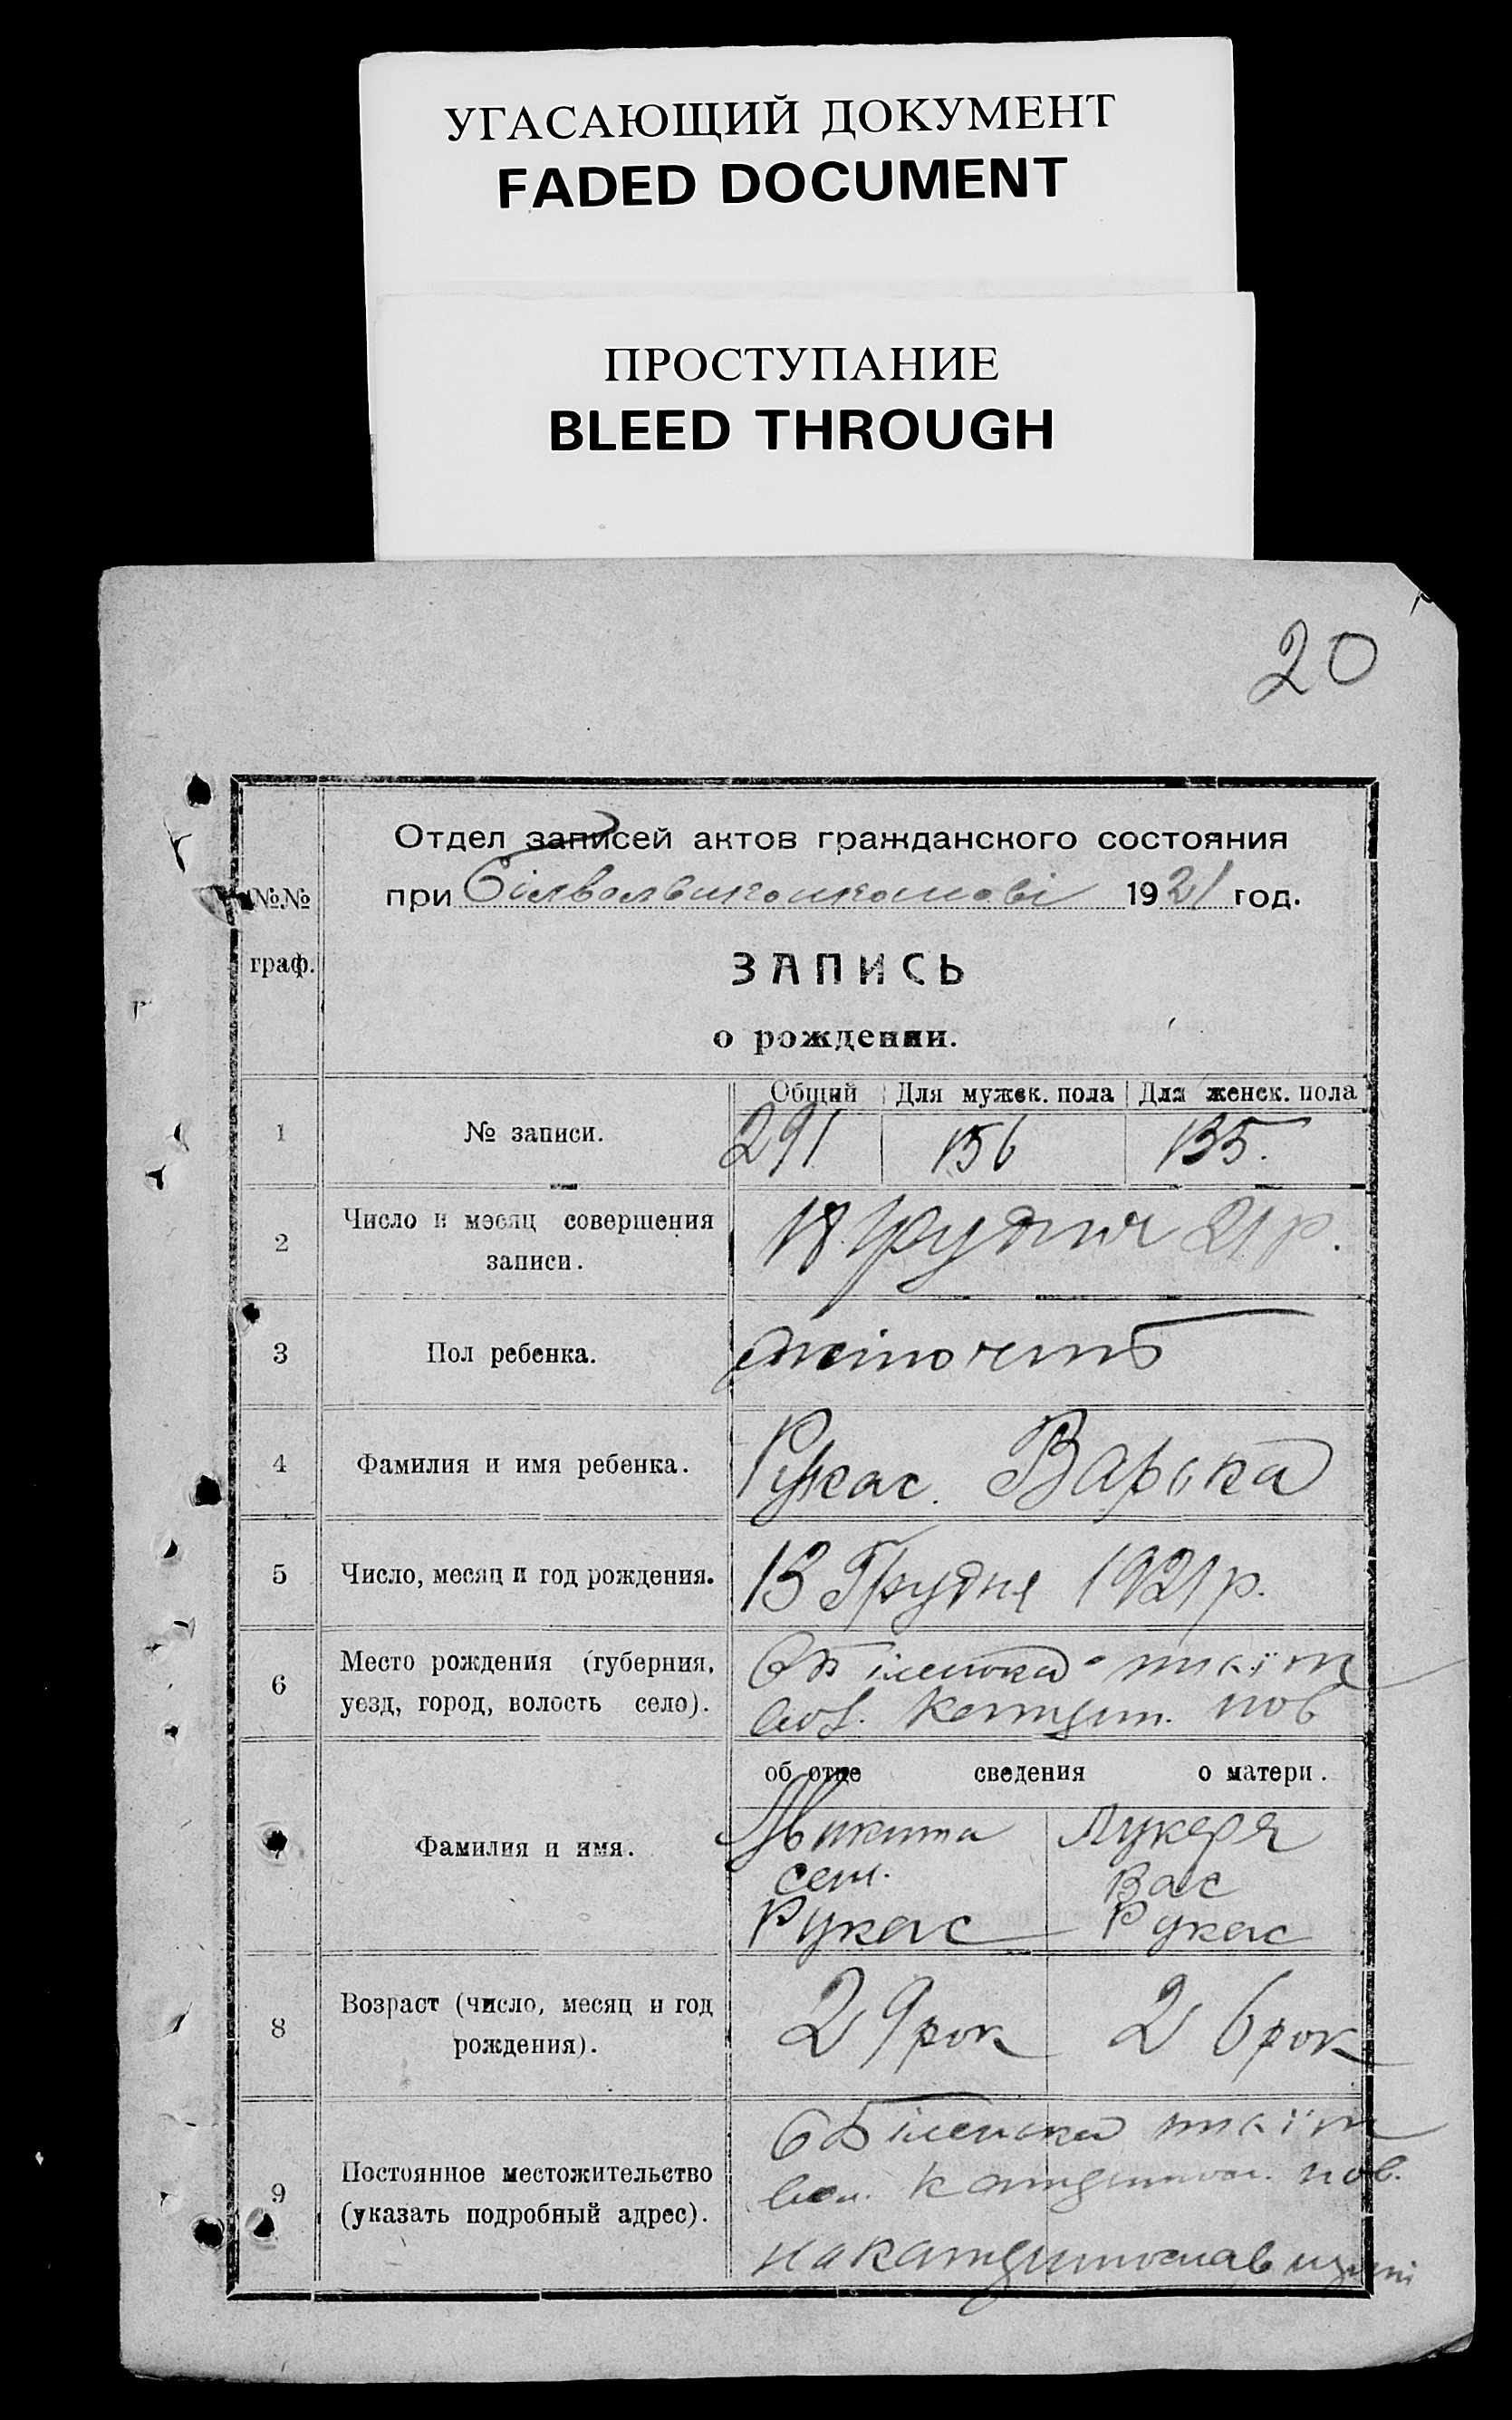 УГАСАЮЩИЙ ДОКУМЕНТ
FADED DOCUMENT
ПРОСТУПАНИЕ
BLEED THROUGH
20
№№ граф.
Отдел записей актов гражданского состояния
при 1921 год.
ЗАПИСЬ
о рождении.
Общий Для мужск. пола Для женск. пола
1 № записи. 291 156 135.
2 Число и месяц совершения записи. 18 грудня 21 р.
3 Пол ребенка.
4 Фамилия и имя ребенка. Рукас. Варька
5 Число, месяц и год рождения. 13 Грудня 1921 р.
6 Место рождения (губерния,
уезд, город, волость село). пов
об отце сведения о матери.
7 Фамилия и имя.
Микита Лукеря
сем. Вас
Рукас Рукас
8 Возраст (число, месяц и год
рождения). 29 рок 26 рок
9 Постоянное местожительство
(указать подробный адрес). пов.